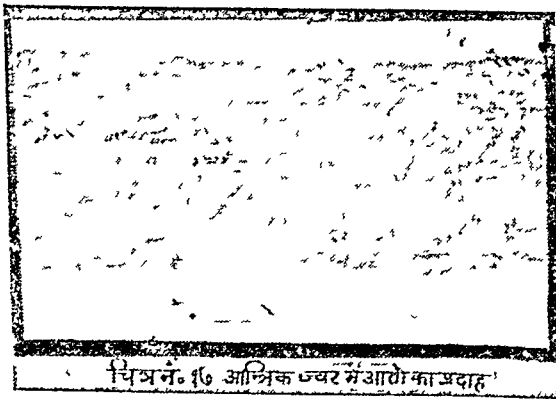 चित्र नं० १७ आन्त्रिक ज्वर में आंतों का प्रदाह